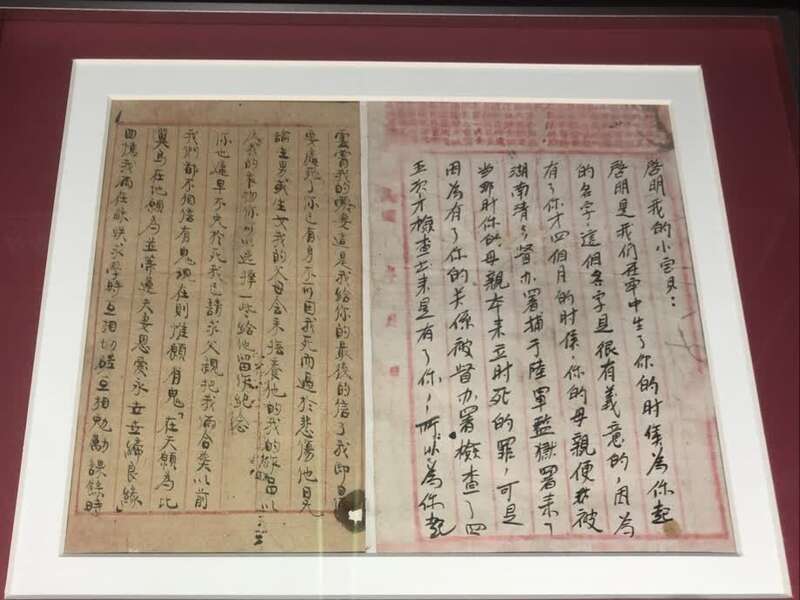 啓明我的小宝贝：
啓明是我们在牢中生了你的时候為你起
的名字，這個名字是很有義意的，因為
有了你才四個月的时候你的母親便被
湖南清乡督办署捕于陸軍監獄署来了
当那时你的母親本来立时死的罪，可是
因為有了你的关係被督办署檢查了四
五次才檢查出来是有了你，所以為你起
雲霄我的愛妻這是我給你的最後的信了我即日
要處死了你已有身不可因我死而過於悲傷他日無
論生男或生女我的父母會來撫養他的我的作品以
及我的衣物你可以選擇一些給他留作紀念
你也遲早不免於死我已請求父親把我倆合葬以前
我們都不相信有鬼現在則惟願有鬼「在天願為比
翼鳥在地願為並蒂蓮夫妻恩愛永世世締良緣」
回憶我倆在蘇聯求學時互相切磋互相勉勵課餘時